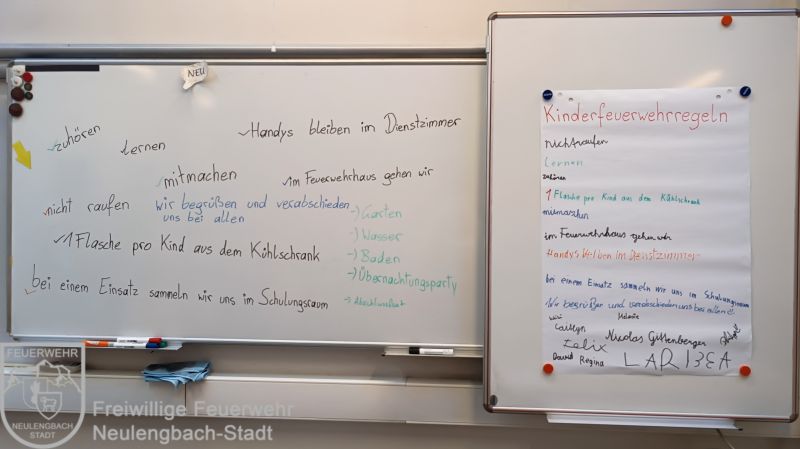 NEU
zuhören
lernen
Handys bleiben im Dienstzimmer
mitmachen
im Feuerwehrhaus gehen wir
nicht raufen
wir begrüßen und verabschieden
uns bei allen
1 Flasche pro Kind aus dem Kühlschrank
bei einem Einsatz sammeln wir uns im Schulungsraum
Garten
Wasser
Baden
Übernachtungsparty
Kinderfeuerwehrregeln
nicht raufen
Lernen
zuhören
1 Flasche pro Kind aus dem Kühlschrank
mitmachen
im Feuerwehrhaus gehen wir
Handys bleiben im Dienstzimmer
bei einem Einsatz sammeln wir uns im Schulungsraum
Wir begrüßen und verabschieden uns bei allen
Melanie
Caitlyn
Nicolas Gittenberger
Felix
David Regina
FEUERWEHR
NEULENGBACH
STADT
Freiwillige Feuerwehr
Neulengbach-Stadt